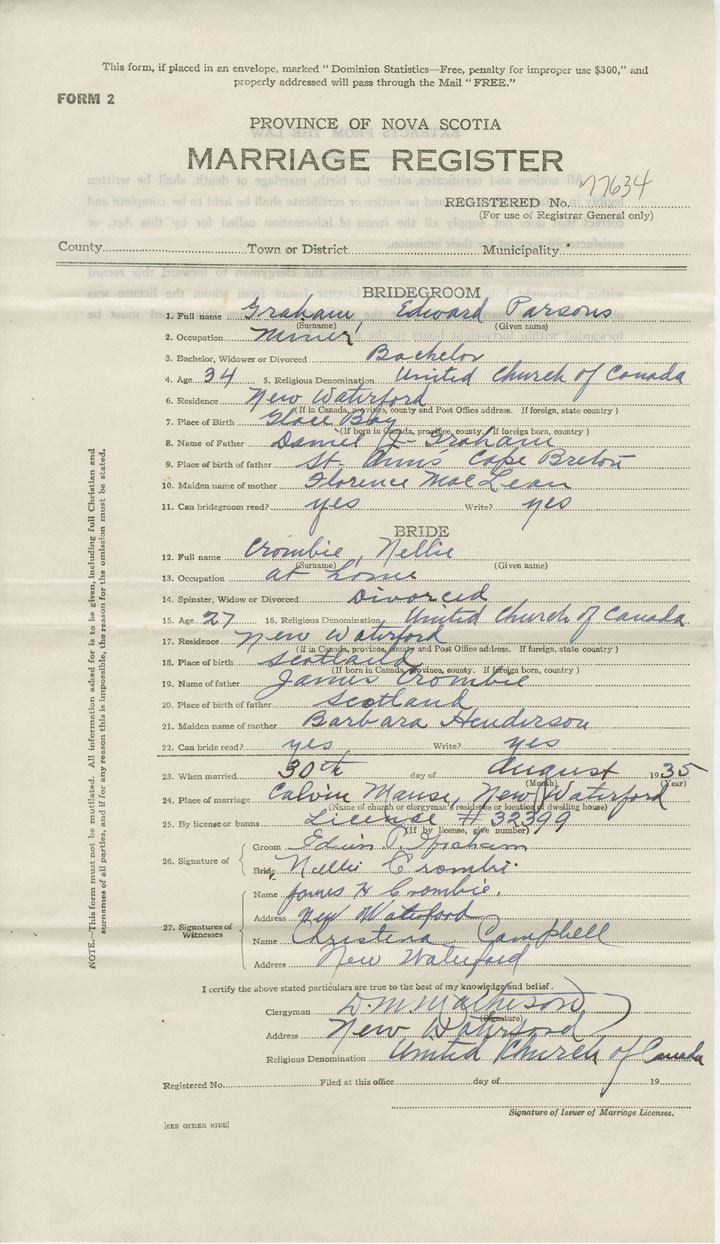 This form, if placed in an envelope, marked " Dominion Statistics—Free, penalty for improper use $300," and
properly addressed will pass through the Mail " FREE."
FORM 2
PROVINCE OF NOVA SCOTIA
MARRIAGE REGISTER
REGISTERED No. 77634
(For use of Registrar General only)
County Town or District Municipality
BRIDEGROOM
1. Full name Graham, Edward Parsons
(Surname) (Given name)
2. Occupation Miner
3. Bachelor, Widower or Divorced Bachelor
4. Age 34 5. Religious Denomination United Church of Canada
6. Residence New Waterford
(If in Canada, province, county and Post Office address. If foreign, state country )
7. Place of Birth Glace Bay
(If born in Canada, province, county. If foreign born, country )
8. Name of Father Daniel Graham
9. Place of birth of father St. Anns Cape Breton
10. Maiden name of mother Florence MacLean
11. Can bridegroom read? yes Write? yes
BRIDE
12. Full name Crombie, Nellie
(Surname) (Given name)
13. Occupation at home
14. Spinster, Widow or Divorced Divorced
15. Age 27 16. Religious Denomination United Church of Canada
17. Residence New Waterford
(If in Canada, province, county and Post Office address. If foreign, state country )
18. Place of birth Scotland
(If born in Canada, province, county. If foreign born, country )
19. Name of father James Crombie
20. Place of birth of father Scotland
21. Maiden name of mother Barbara Henderson
22. Can bride read? yes Write? yes
23. When married 30th day of August 1935
(Month) (Year)
24. Place of marriage Calvin Manse, New Waterford
(Name of church or clergyman's residence or location of dwelling house)
25. By license or banns License # 32399
(If by license, give number)
26. Signature of
Groom Edwin P. Graham
Bride Nellie Crombi.
27. Signatures of Witnesses
Name James H Crombie.
Address New Waterford
Name Christena Campbell
Address New Waterford
I certify the above stated particulars are true to the best of my knowledge and belief.
Clergyman D. M. Matheson
(Signature)
Address New Waterford
Religious Denomination United Church of Canada
Registered No. Filed at this office day of 19
Signature of Issuer of Marriage Licenses.
[SEE OTHER SIDE]
NOTE.—This form must not be mutilated. All information asked for is to be given, including full Christian and
surnames of all parties, and if for any reason this is impossible, the reason for the omission must be stated.